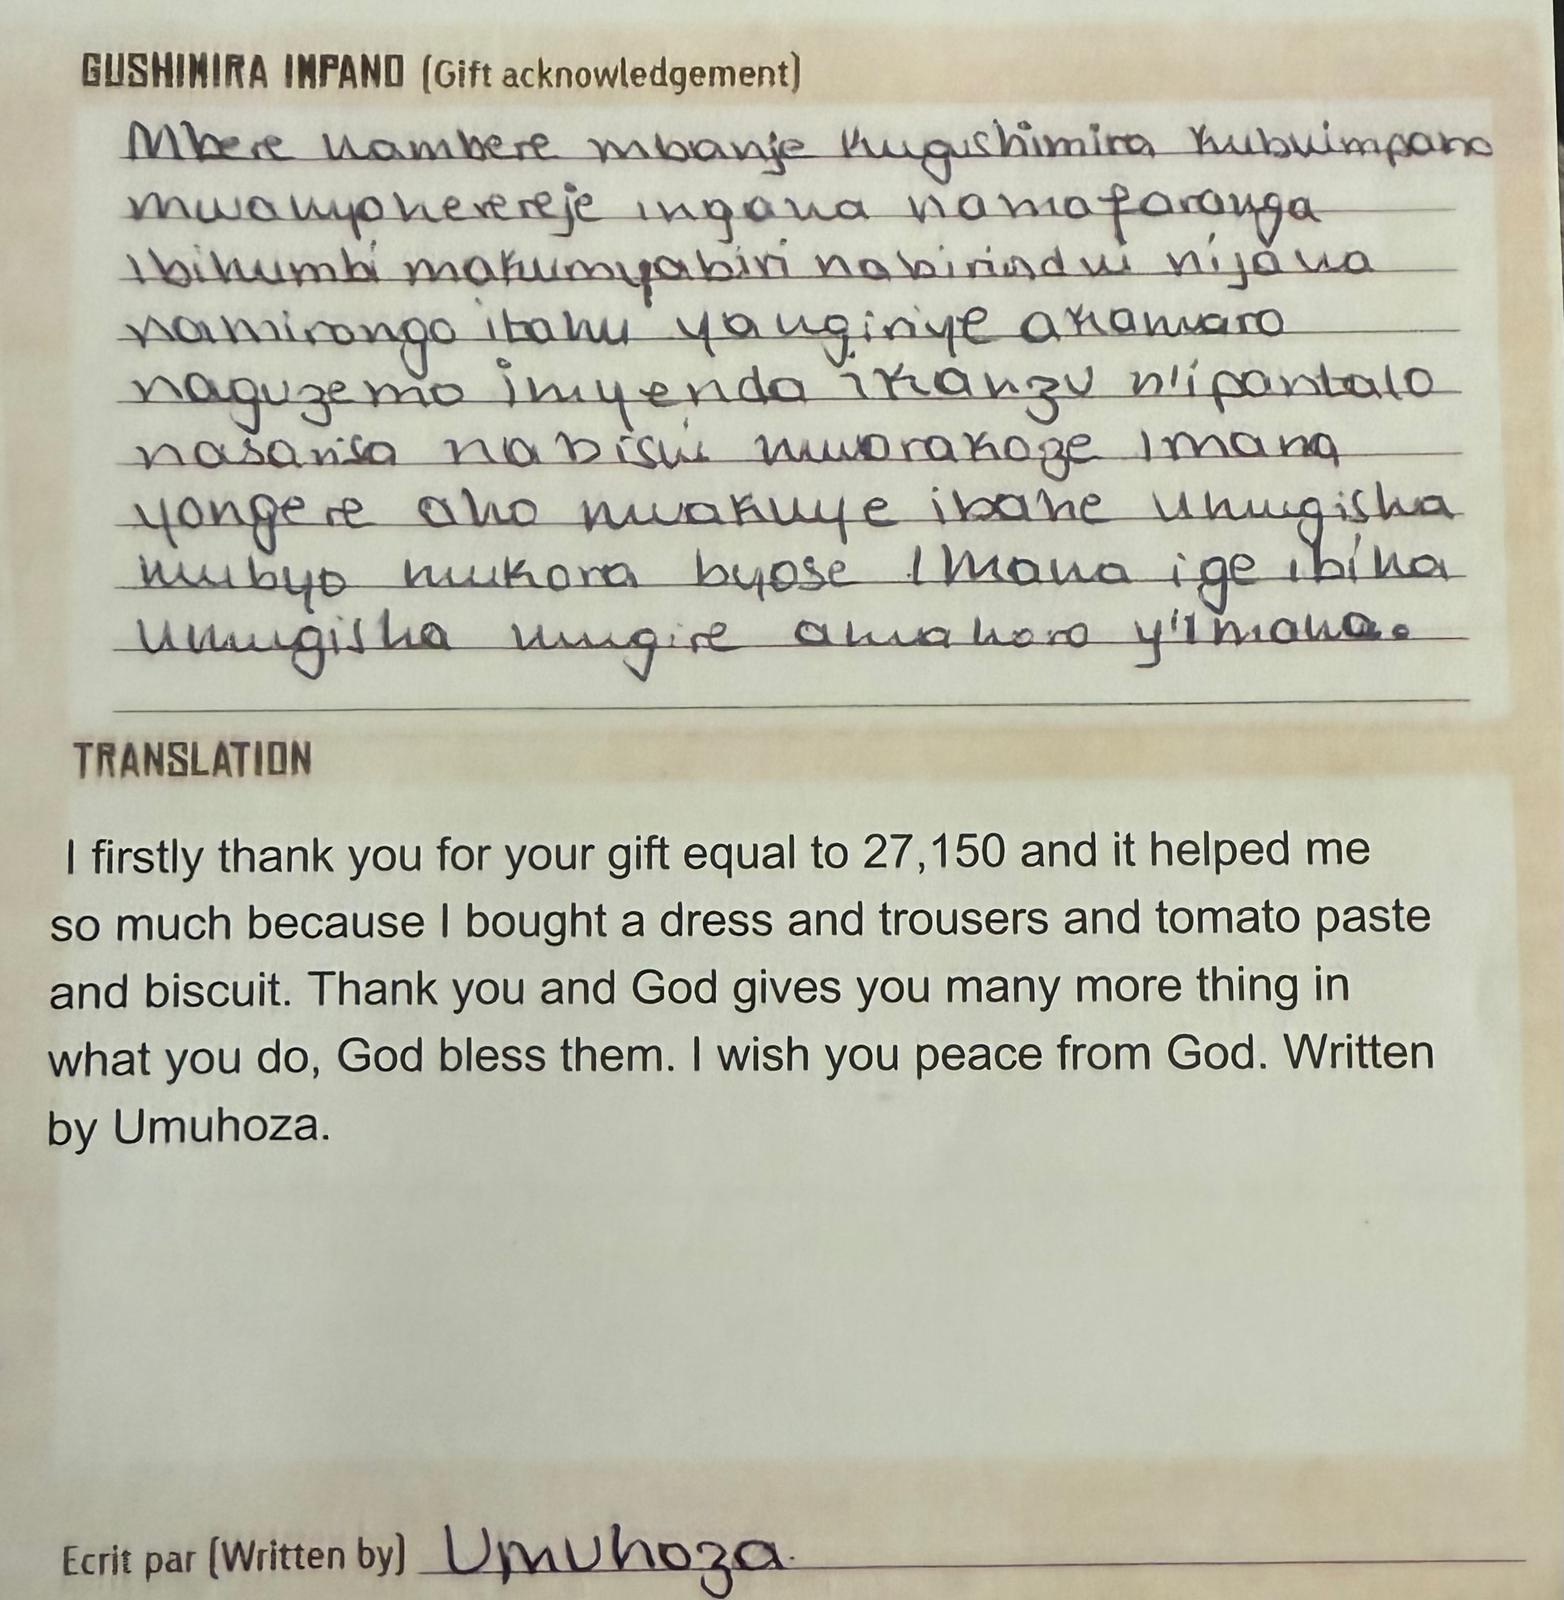 GUSHIMIRA IMPANO (Gift acknowledgement)
Mbere nambere mbanje kugushimira kubwimpano
mwanyoherereje ingana namafaranga
ibihumbi makumyabiri nabirindwi nijana
namirongo itanu yangiriye akamaro
naguzemo imyenda ikanzu n'ipantalo
nasarisa nabiswi mwarakoze Imana
yongere aho mwakuye ibahe umugisha
mubyo mukora byose Imana ige ibiha
umugisha mugire amahoro y'Imana.
TRANSLATION
I firstly thank you for your gift equal to 27,150 and it helped me
so much because I bought a dress and trousers and tomato paste
and biscuit. Thank you and God gives you many more thing in
what you do, God bless them. I wish you peace from God. Written
by Umuhoza.
Ecrit par (Written by) Umuhoza.